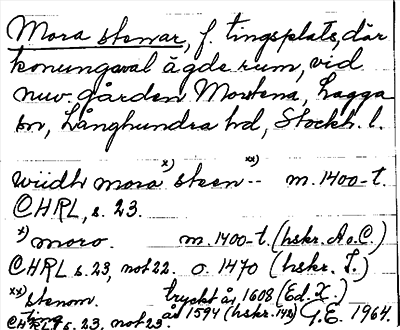 Mora stenar, f. tingsplats, där
konungaval ägde rum, vid
nuv. gården Mostena, Lagga
sn, Långhundra hd, Stockh. l.
wiidh mora x) steen xx) -- m. 1400-t.
CHRL, s. 23.
x) moro. m. 1400-t. (hskr. A o. C.)
CHRL s. 23, not 22. o. 1470 (hskr. I.)
xx) stenom. tryckt år 1608 (Ed. X.)
år 1594 (hskr. 142) G.E. 1964.
CHRL s. 23, not 23.